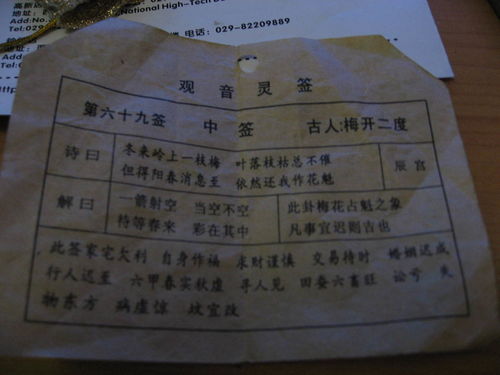 高新
地址:
Add:No.
Tel:029
National High-Tech
电话: 029-82209889
地址:
Add:
Tel:0
Http
观音灵签
第六十九签 中签 古人:梅开二度
诗曰
冬来岭上一枝梅 叶落枝枯总不催
但得阳春消息至 依然还我作花魁
辰宫
解曰
一箭射空 当空不空
待等春来 彩在其中
此卦梅花占魁之象
凡事宜迟则吉也
此签家宅大利 自身作福 求财谨慎 交易待时 婚姻迟成
行人迟至 六甲春实秋虚 寻人见 田蚕六畜旺 讼亏 失
物东方 病虚惊 坟宜改